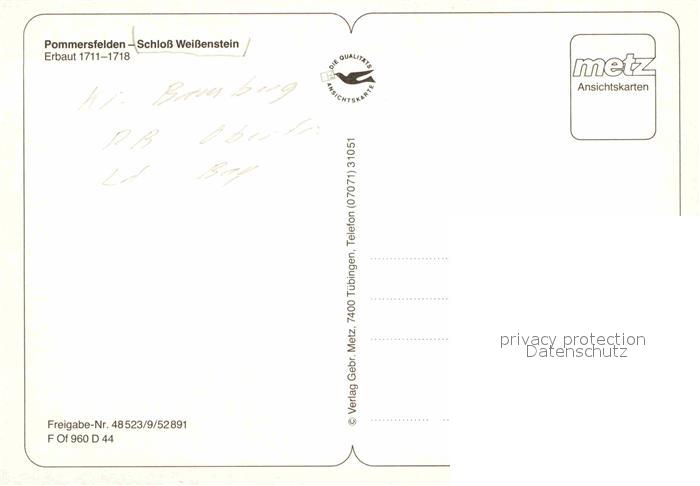 Pommersfelden – Schloß Weißenstein
Erbaut 1711–1718
Kr. Bamberg
RB Oberfr.
Ld Bay
DIE QUALITÄTS
ANSICHTSKARTE
metz
Ansichtskarten
© Verlag Gebr. Metz, 7400 Tübingen, Telefon (07071) 31051
privacy protection
Datenschutz
Freigabe-Nr. 48523/9/52891
F Of 960 D 44